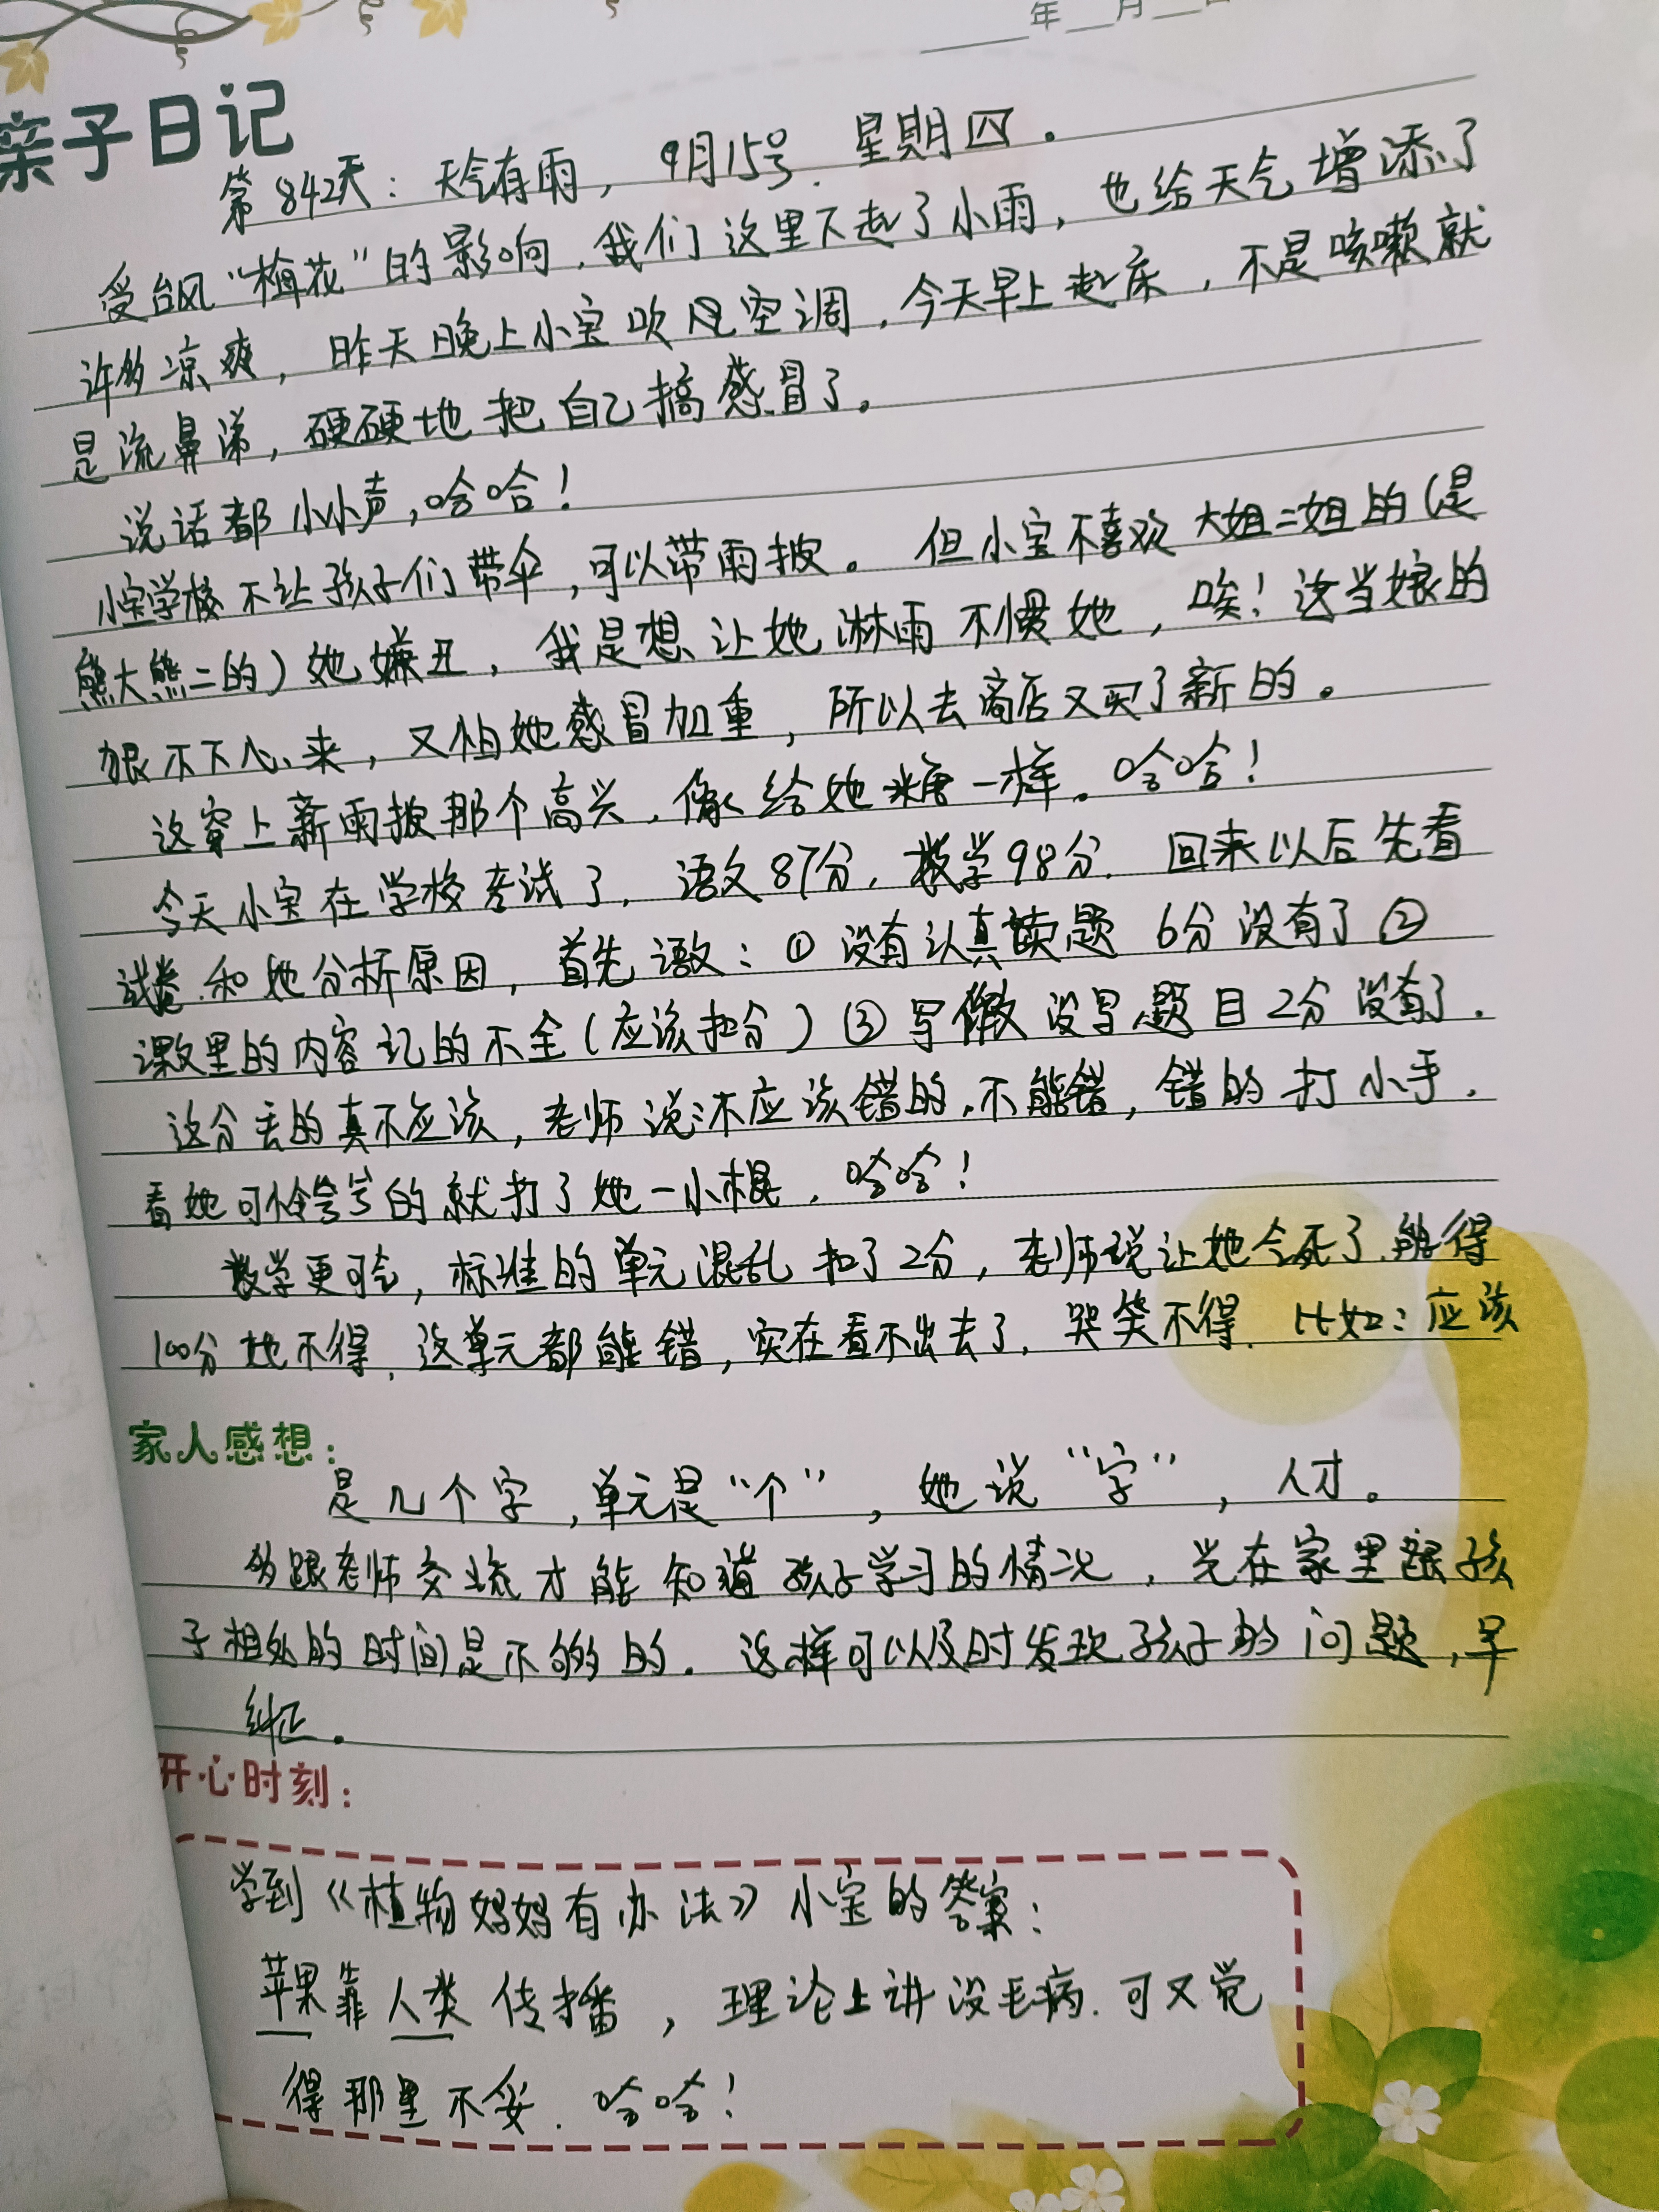 年 月 日
亲子日记
第842天：天气有雨，9月15号.星期四。
受台风“梅花”的影响,我们这里下起了小雨,也给天气增添了
许多凉爽,昨天晚上小宝吹空调,今天早上起床,不是咳嗽就
是流鼻涕,硬硬地把自己搞感冒了。
说话都小小声,哈哈!
小宝学校不让孩子们带伞,可以带雨披。但小宝不喜欢大姐二姐的(是
熊大熊二的)她嫌丑,我是想让她淋雨不惯她,唉!这当娘的
狠不下心来,又怕她感冒加重,所以去商店又买了新的。
这穿上新雨披那个高兴,像给她糖一样。哈哈!
今天小宝在学校考试了,语文87分,数学98分.回来以后先看
试卷.和她分析原因,首先语文:①没有认真读题6分没有了②
课文里的内容记的不全(应该扣分)③写做没写题目2分没有了.
这分丢的真不应该,老师说:不应该错的.不能错,错的打小手.
看她可怜兮兮的就打了她一小棍,哈哈!
数学更可气,标准的单元混乱扣了2分,老师说让她气死了.能得
100分她不得,这单元都能错,实在看不出去了,哭笑不得.比如:应该
家人感想:
是几个字,单元是“个”,她说“字”,人才。
多跟老师交流才能知道孩子学习的情况,光在家里跟孩
子相处的时间是不够的.这样可以及时发现孩子的问题,早
纠正。
开心时刻:
学到《植物妈妈有办法》小宝的答案:
苹果靠人类传播,理论上讲没毛病.可又觉
得那里不妥.哈哈!